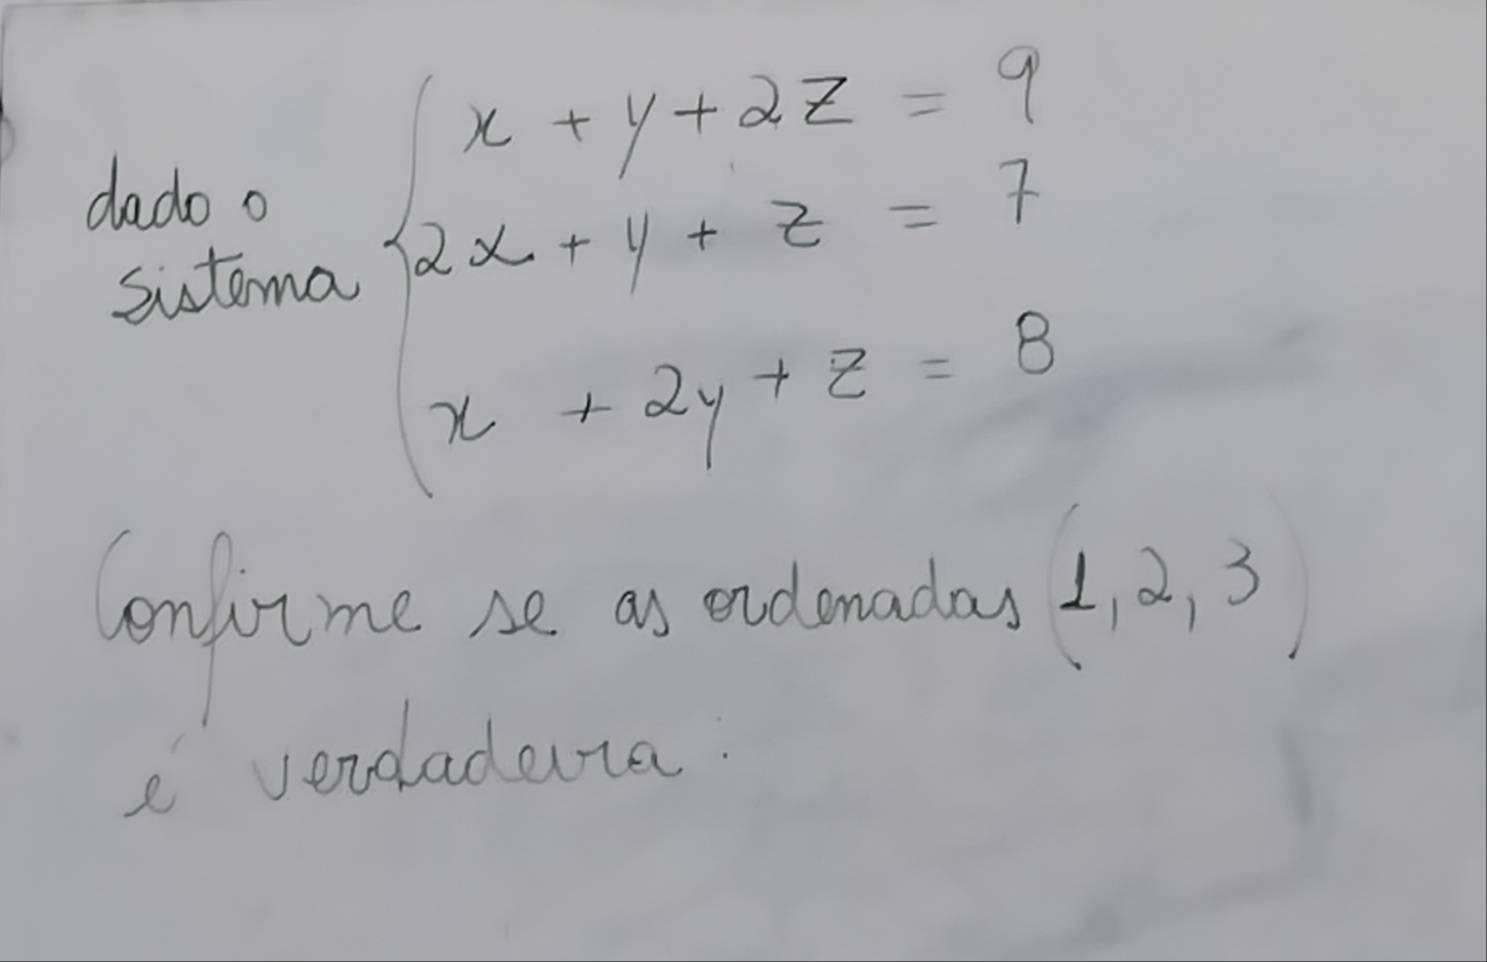 x + y + 2z = 9
dado o
2x + y + z = 7
sistema
x + 2y + z = 8
Confirme se as ordenadas (1, 2, 3)
é verdadeira.